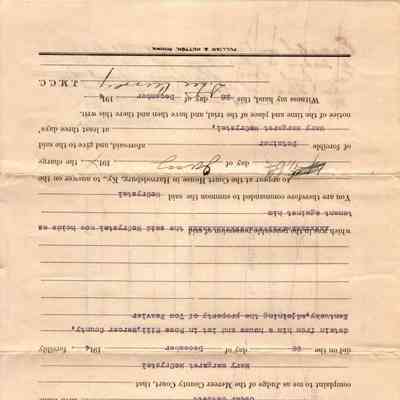 complaint to me as Judge of the Mercer County Court, that,
Mary Margaret McCrystal
did on the 20 day of December 1914, forcibly
detain from him a house and lot in Rose Hill, Mercer County,
Kentucky, adjoining the property of Tom Peavler
the said McCrystal now holds as
tenant against him
You are therefore commanded to summon the said McCrystal
to appear at the Court House in Harrodsburg, Ky., to answer on the
day of Jany 191 the charge
of forcible Detainer aforesaid, and give to the said
Mary Margaret McCrystal, at least three days'
notice of the time and place of the trial, and have then and there this writ.
Witness my hand, this 20 day of December 1914
J.M.C.C.
PULLIAM & HUTTON